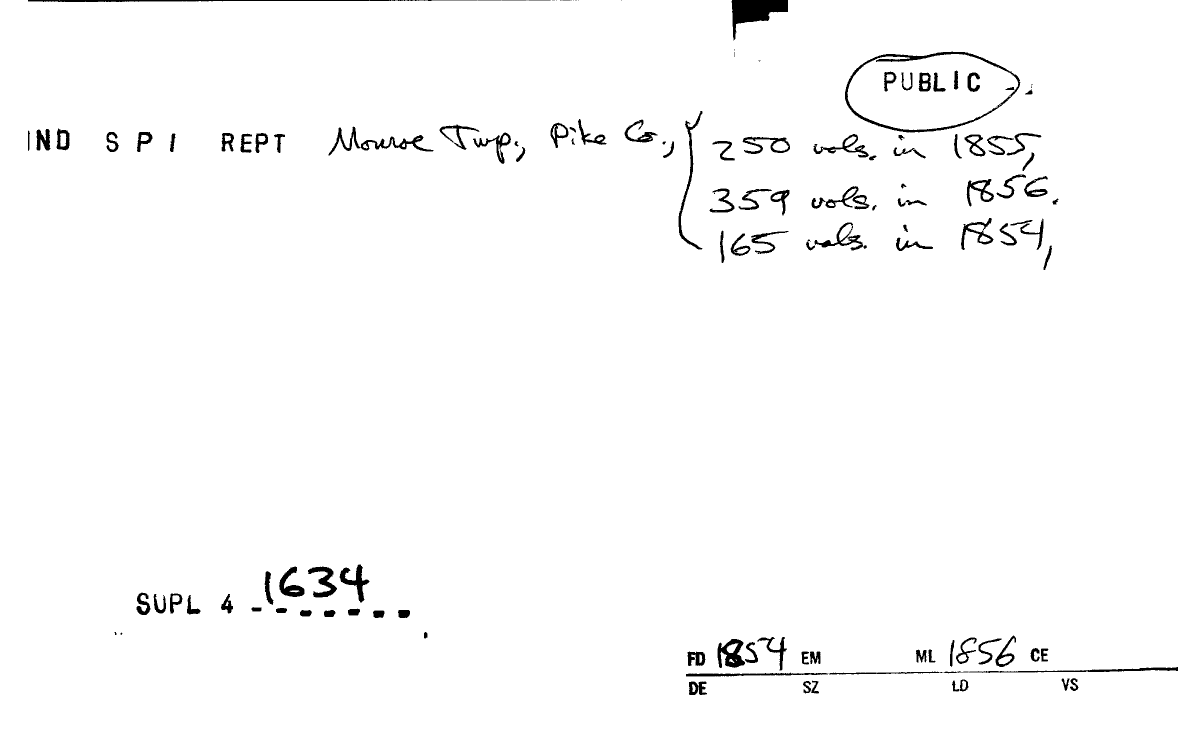 PUBLIC
IND S P I REPT Monroe Twp., Pike Co., 250 vols. in 1855,
359 vols. in 1856.
165 vols. in 1854,
SUPL 4 1634
FD 1854 EM ML 1856 CE
DE SZ LD VS